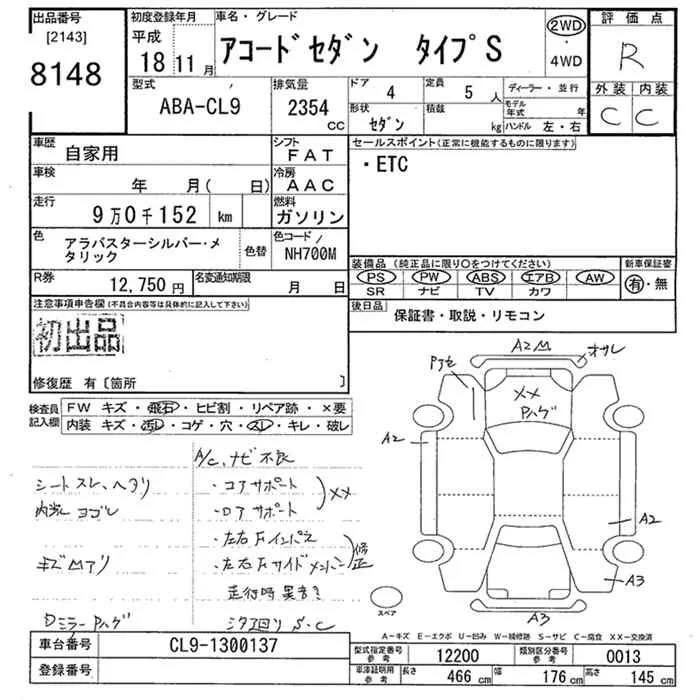 出品番号
[2143]
8148
初度登録年月
平成
18 11月
車名・グレード
アコードセダン タイプS
2WD
・
4WD
評価点
R
外装 内装
C C
型式
ABA-CL9
排気量
2354
CC
ドア
4
定員
5人
形状
セダン
積載
kg
ディーラー・並行
モデル年式 年
ハンドル 左・右
車歴
自家用
シフト
FAT
車検
年 月( 日)
冷房
AAC
走行
9万0千152 km
燃料
ガソリン
色
アラバスターシルバー・メタリック
色替
色コード
NH700M
R券
12,750円
名変通知期限
月 日
セールスポイント(正常に機能するものに限ります)
・ETC
装備品(純正品に限り○をつけてください)
PS PW ABS エアB AW
SR ナビ TV カワ
新車保証書
有・無
後日品
保証書・取説・リモコン
注意事項申告欄(不具合内容等は具体的に記入して下さい)
初出品
修復歴 有〔箇所 〕
検査員記入欄
FW キズ・飛石・ヒビ割・リペア跡・×要
内装 キズ・汚レ・コゲ・穴・スレ・キレ・破レ
A/C、ナビ不良
シートスレ、ヘタリ
・コアサポート
内装ヨゴレ
・ロアサポート
XX
・左右Fインパネ
キズUアリ
・左右Fサイドメンバー
修正
走行時異音?
Dミラー Pハゲ
シタ回リ S・C
A2
オサレ
XX
Pハゲ
A2
A2
A3
A3
スペア
A-キズ E-エクボ U-凹み W-補修跡 S-サビ C-腐食 XX-交換済
車台番号
CL9-1300137
登録番号
型式指定番号
参考
12200
類別区分番号
参考
0013
車庫証明用
参考
長さ 466cm
幅 176cm
高さ 145cm